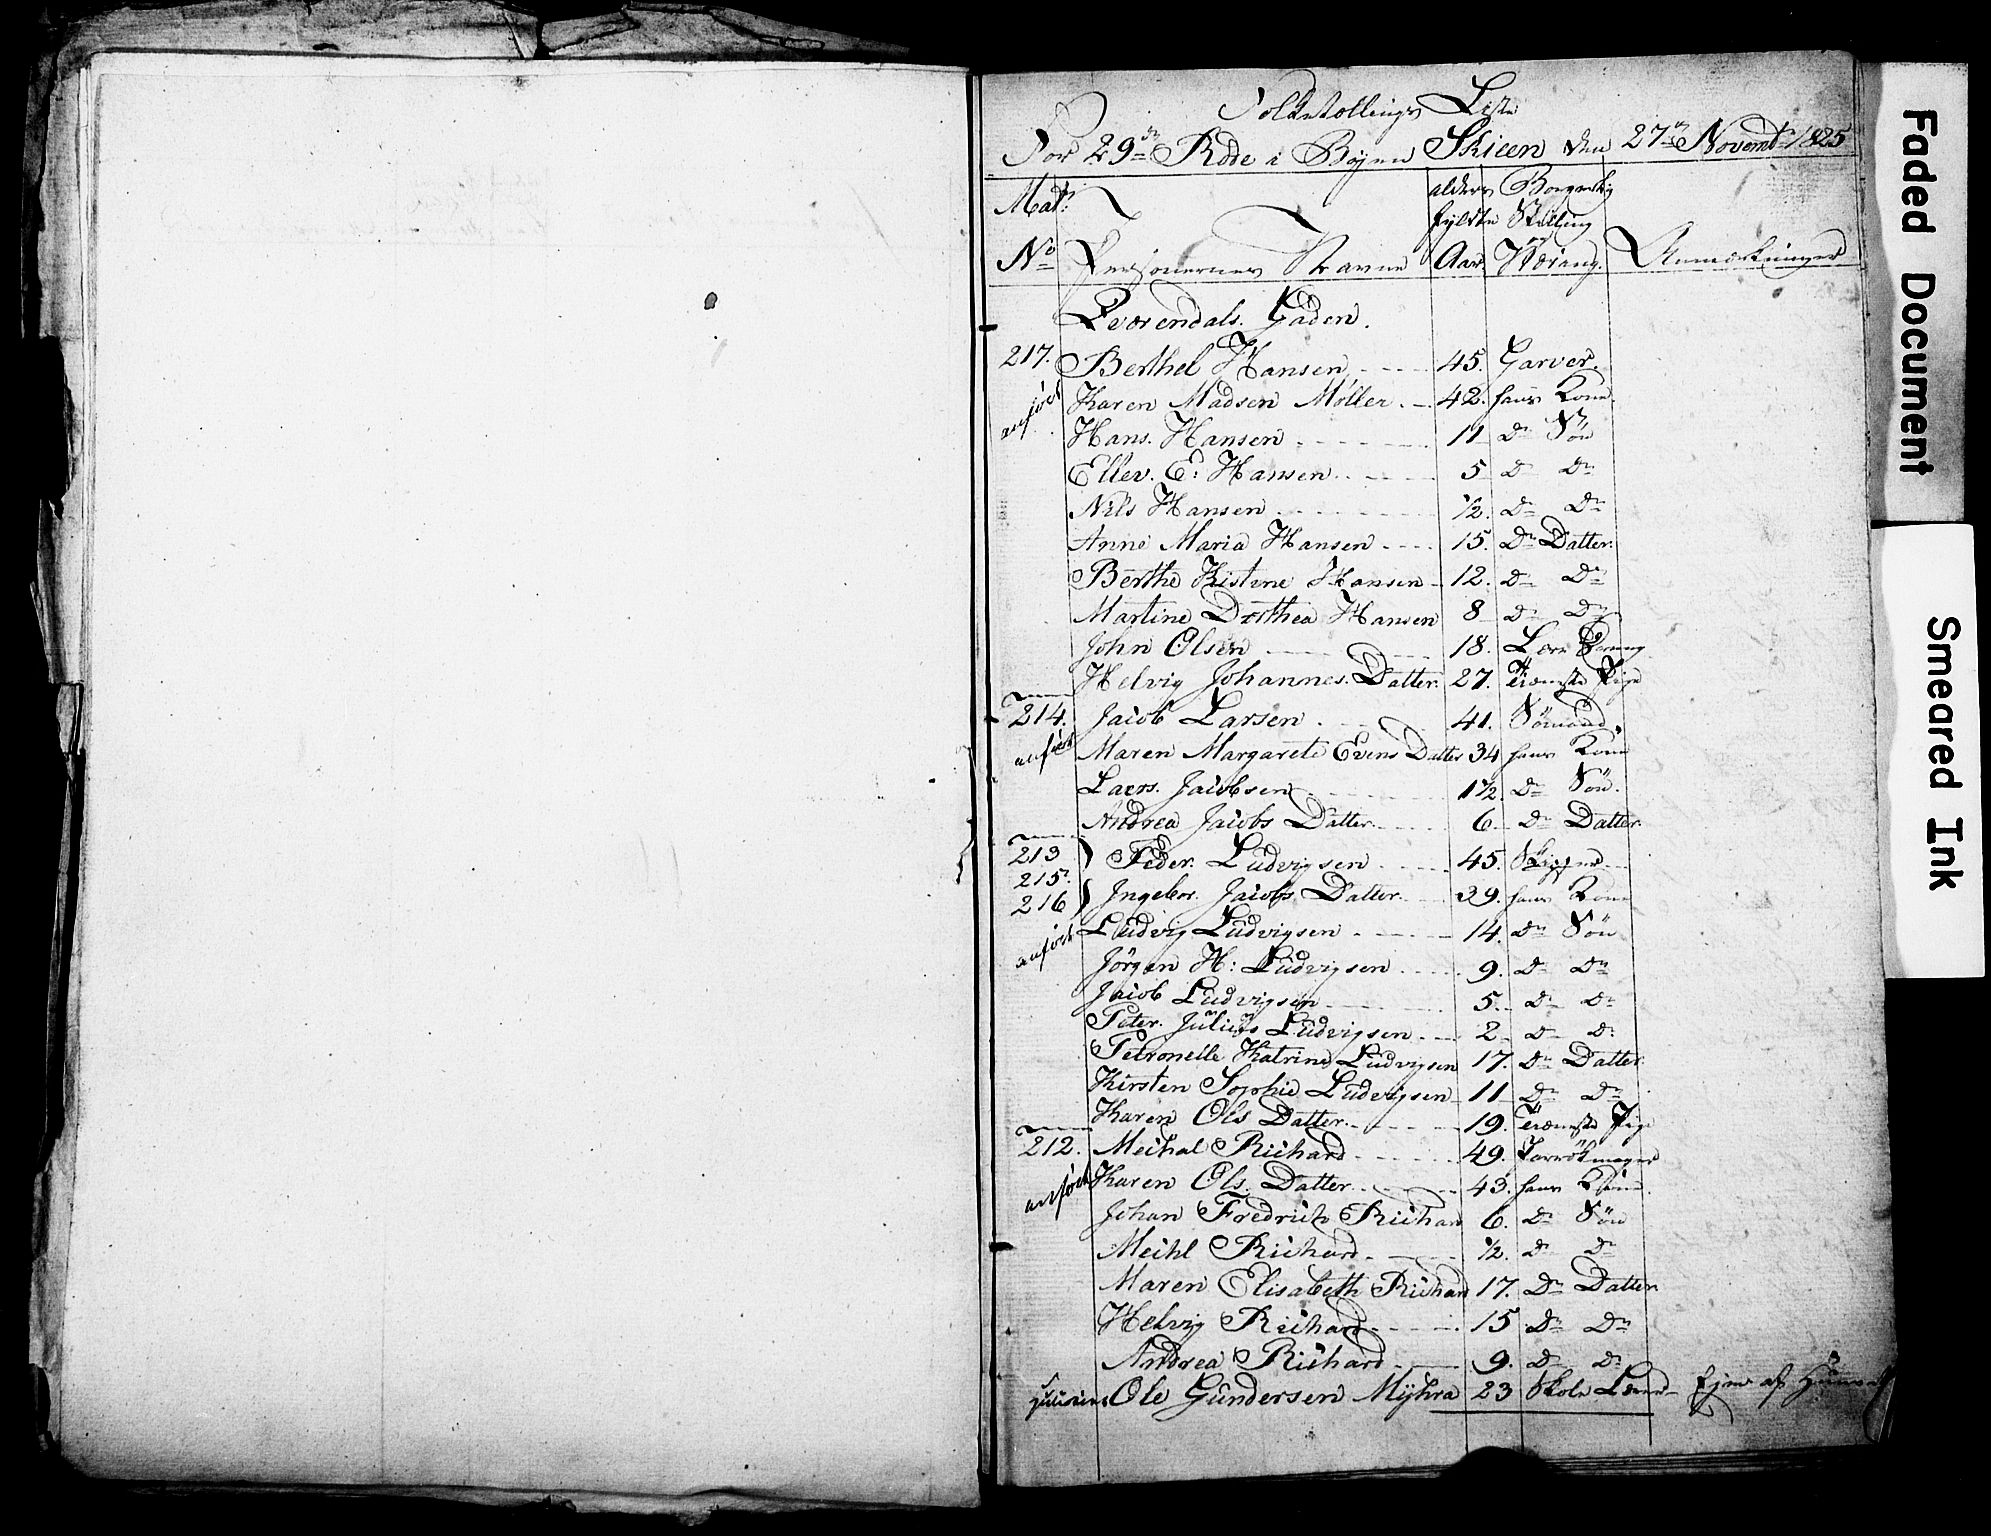 Folketællings Liste
For 29de Rode i Byen Skieen den 27de Novembr 1825
Matr: No Personernes Navne alders fyldte Aar Borgerlig Stilling Næring. Anmærkninger
Leverendals. Gaden.
217. Berthel Hansen 45. Garver.
anført Karen Madsen Møller 42. hans Kone
Hans. Hansen 11 Do Søn
Ellev. E: Hansen 5 Do Do
Nils Hansen 1/2. Do Do
Anne Maria Hansen 15. Do Datter.
Berthe Kistine Hansen 12. Do Do
Martine Dorthea Hansen 8 Do Do
John Olsen 18. Lære Dreng
Helvig Johannes. Datter. 27. Tieneste Pige
214. Jacob Larsen 41. Sømand.
anført Maren Margarete Evens Datter 34 hans Kone
Lars. Jacobsen 1 1/2. Do Søn.
Andrea Jacobs Datter 6 Do Datter.
213 Peder. Ludvigsen 45. Skipper
215.
216 Ingebor. Jacobs Datter. 39. hans Kone
anført Ludvig Ludvigsen 14. Do Søn
Jørgen H: Ludvigsen 9. Do Do
Jacob Ludvigsen 5. Do Do
Peter. Julius Ludvigsen 2 Do Do
Petronelle Katrine Ludvigsen 17. Do Datter
Kirsten Sophie Ludvigsen 11 Do Do
Karen Ols Datter. 19. Tieneste Pige
212. Meichal Richard 49.
anført Karen Ols. Datter 43. hans Kone.
Johan Fredrich Richard 6. Do Søn
Meichl Richard 1/2. Do Do
Maren Elisabeth Richard 17. Do Datter.
Helvig Richard 15 Do Do
Andrea Richard 9. Do Do
Ole Gundersen Myhra 23 Skole Lærer Ejer af
Faded Document
Smeared Ink